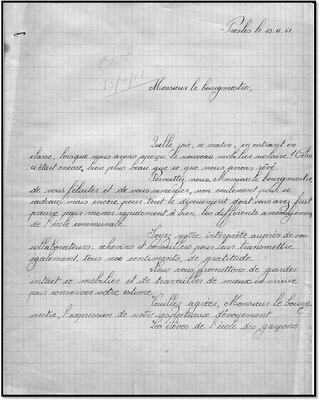 Presles le 13.11.61
Monsieur le bourgmestre,
Quelle joie, ce matin, en entrant en
classe, lorsque nous avons aperçu le nouveau mobilier scolaire !
c'était encore bien plus beau que ce que nous avions rêvé.
Permettez-nous, Monsieur le bourgmestre
de vous féliciter et de vous remercier, non seulement pour ce
cadeau, mais encore pour tout le dévouement dont vous avez fait
preuve pour mener rapidement à bien, les différents aménagements
de l'école communale.
Soyez notre interprète auprès de vos
collaborateurs: échevins et conseillers pour leur transmettre
également, tous nos sentiments, de gratitude.
Nous vous promettons de garder
intact ce mobilier et de travailler de mieux en mieux
pour conserver votre estime.
Veuillez agréer, Monsieur le bourg-
mestre, l'expression de notre respectueux dévouement
Les élèves de l'école des garçons